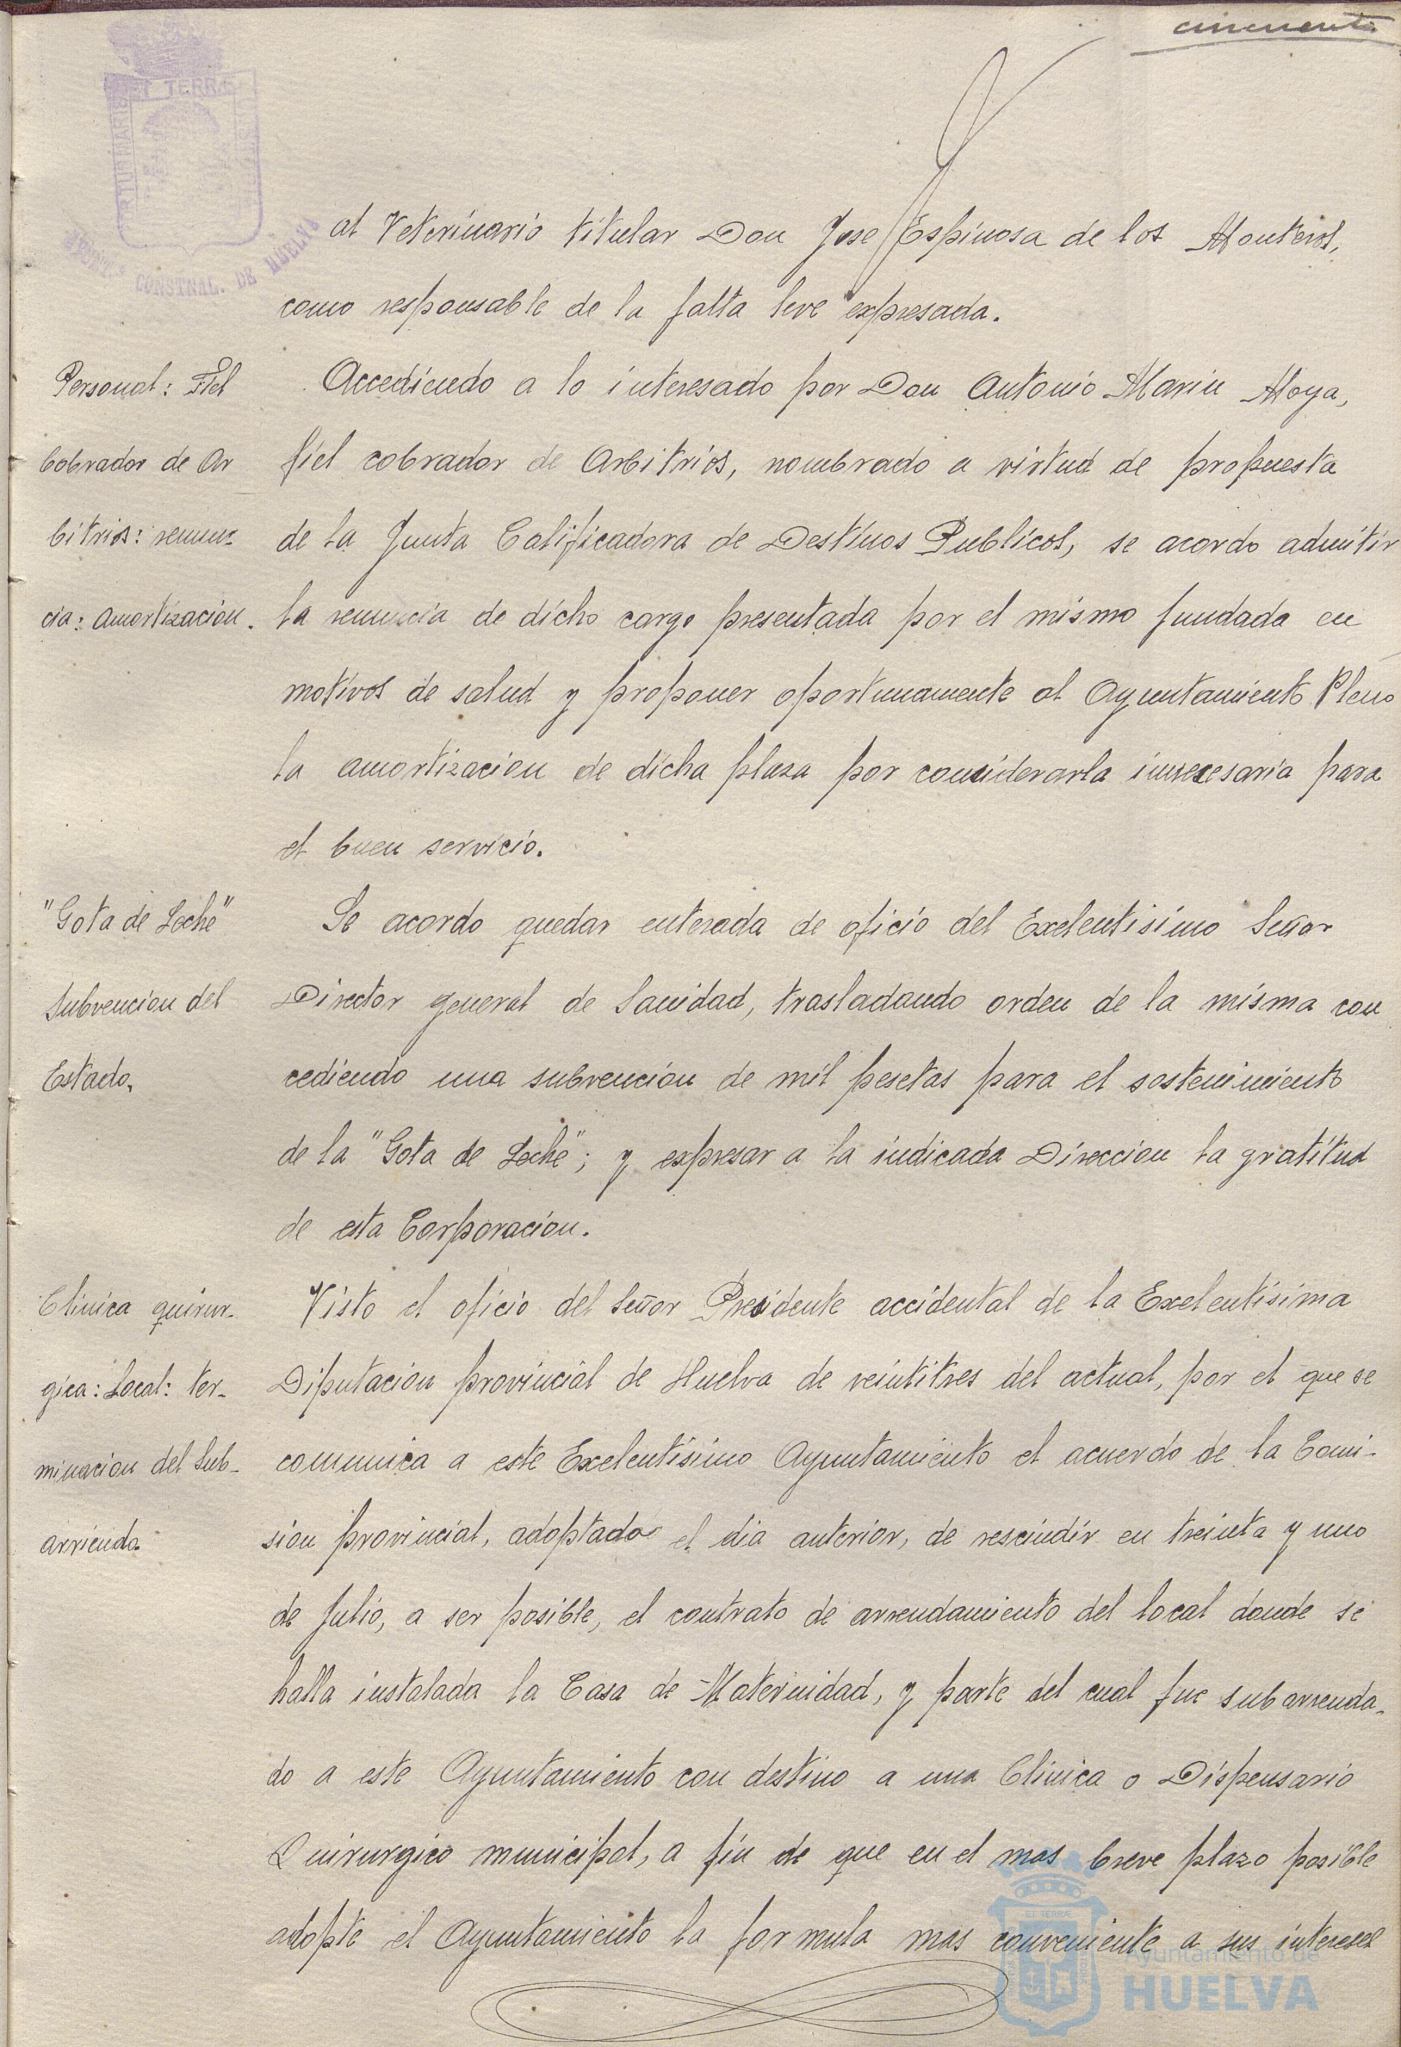 cincuenta
ET TERRÆ
AYUNT.º CONSTNAL. DE HUELVA
al Veterinario titular Don Jose Espinosa de los Monteros,
como responsable de la falta leve expresada.
Personal: Fiel
Cobrador de Ar
bitrios: renun-
cia: amortizacion.
Accediendo a lo interesado por Don Antonio Marin Moya,
fiel cobrador de Arbitrios, nombrado a virtud de propuesta
de la Junta Calificadora de Destinos Publicos, se acordo admitir
la renuncia de dicho cargo presentada por el mismo fundada en
motivos de salud y proponer oportunamente al Ayuntamiento Pleno
la amortizacion de dicha plaza por considerarla innecesaria para
el buen servicio.
"Gota de Leche"
Subvencion del
Estado.
Se acordo quedar enterada de oficio del Exelentisimo Señor
Director general de Sanidad, trasladando orden de la misma con
cediendo una subvencion de mil pesetas para el sostenimiento
de la "Gota de Leche"; y expresar a la indicada Direccion la gratitud
de esta Corporacion.
Clinica quirur-
gica: Local: ter-
minacion del sub-
arriendo.
Visto el oficio del Señor Presidente accidental de la Exelentisima
Diputacion provincial de Huelva de veintitres del actual, por el que se
comunica a este Exelentisimo Ayuntamiento el acuerdo de la Comi-
sion provincial, adoptado el dia anterior, de rescindir en treinta y uno
de Julio, a ser posible, el contrato de arrendamiento del local donde se
halla instalada la Casa de Maternidad, y parte del cual fue subarrenda-
do a este Ayuntamiento con destino a una Clinica o Dispensario
Quirurgico municipal, a fin de que en el mas breve plazo posible
adopte el Ayuntamiento la formula mas conveniente a sus intereses
Ayuntamiento de
HUELVA